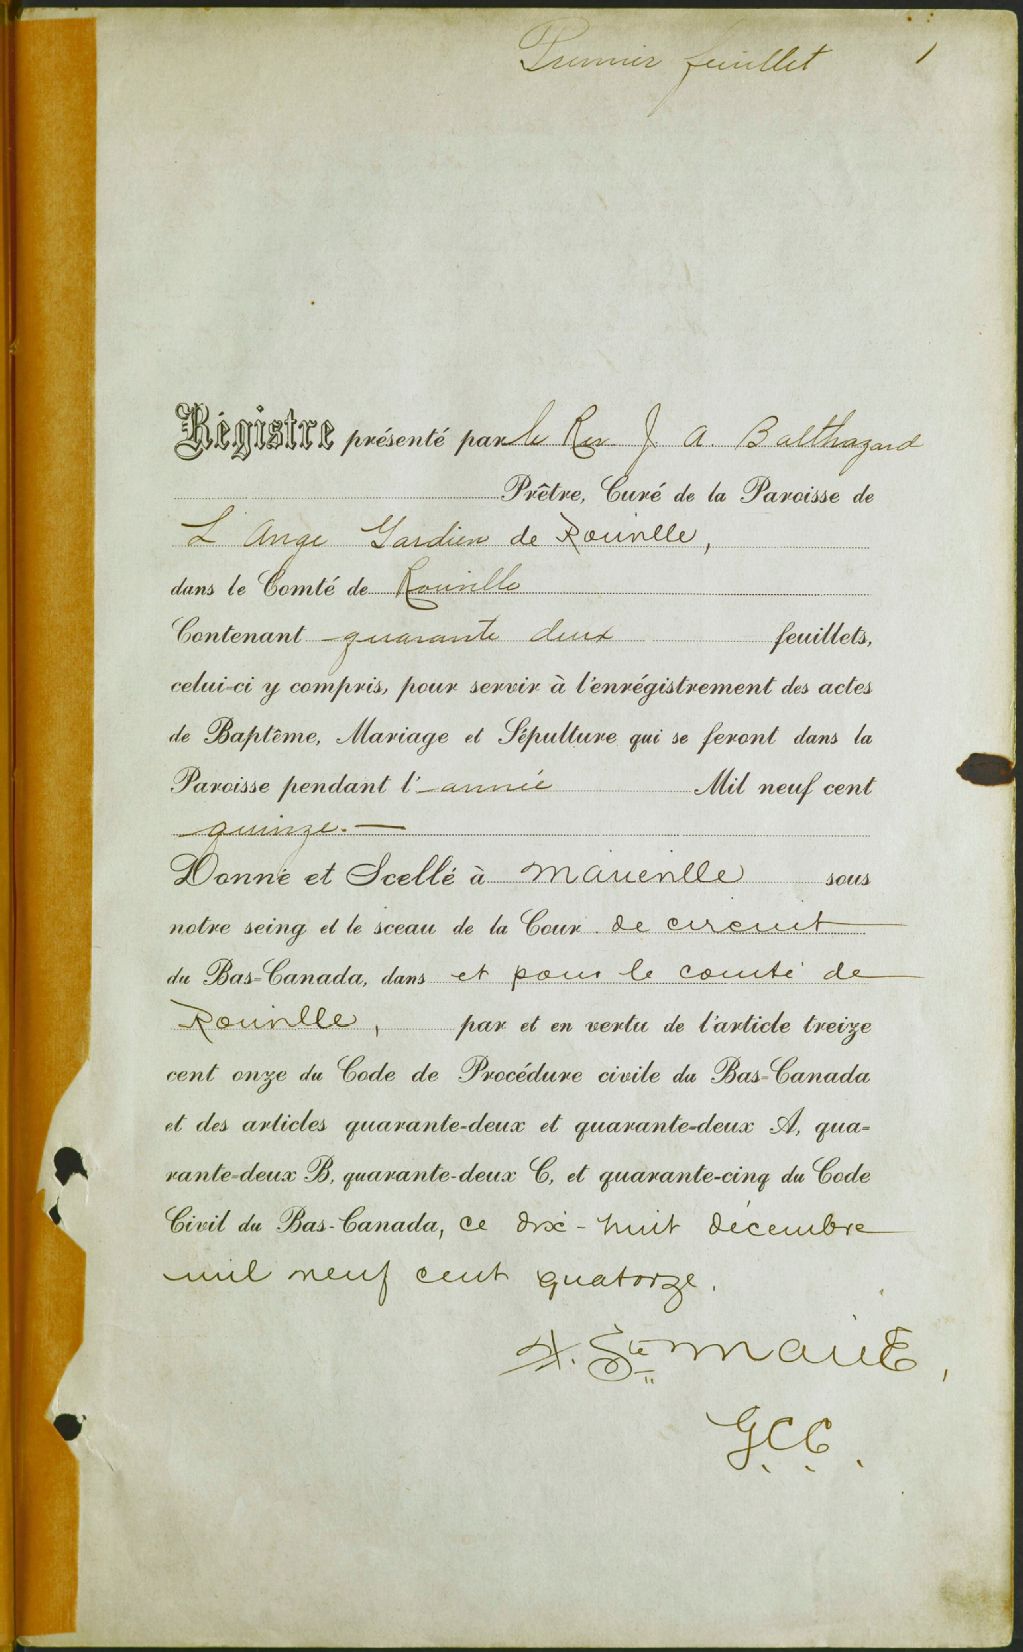 Premier feuillet 1
Régistre présenté par le Rev J A Balthazard
Prêtre, Curé de la Paroisse de
L'Ange Gardien de Rouville,
dans le Comté de Rouville
Contenant quarante deux feuillets,
celui-ci y compris, pour servir à l'enrégistrement des actes
de Baptême, Mariage et Sépulture qui se feront dans la
Paroisse pendant l'année Mil neuf cent
quinze.—
Donné et Scellé à Marieville sous
notre seing et le sceau de la Cour de circuit
du Bas-Canada, dans et pour le comté de
Rouville, par et en vertu de l'article treize
cent onze du Code de Procédure civile du Bas-Canada
et des articles quarante-deux et quarante-deux A, qua-
rante-deux B, quarante-deux C, et quarante-cinq du Code
Civil du Bas-Canada, ce dix-huit décembre
mil neuf cent quatorze.
A. Ste Marie,
G.C.C.